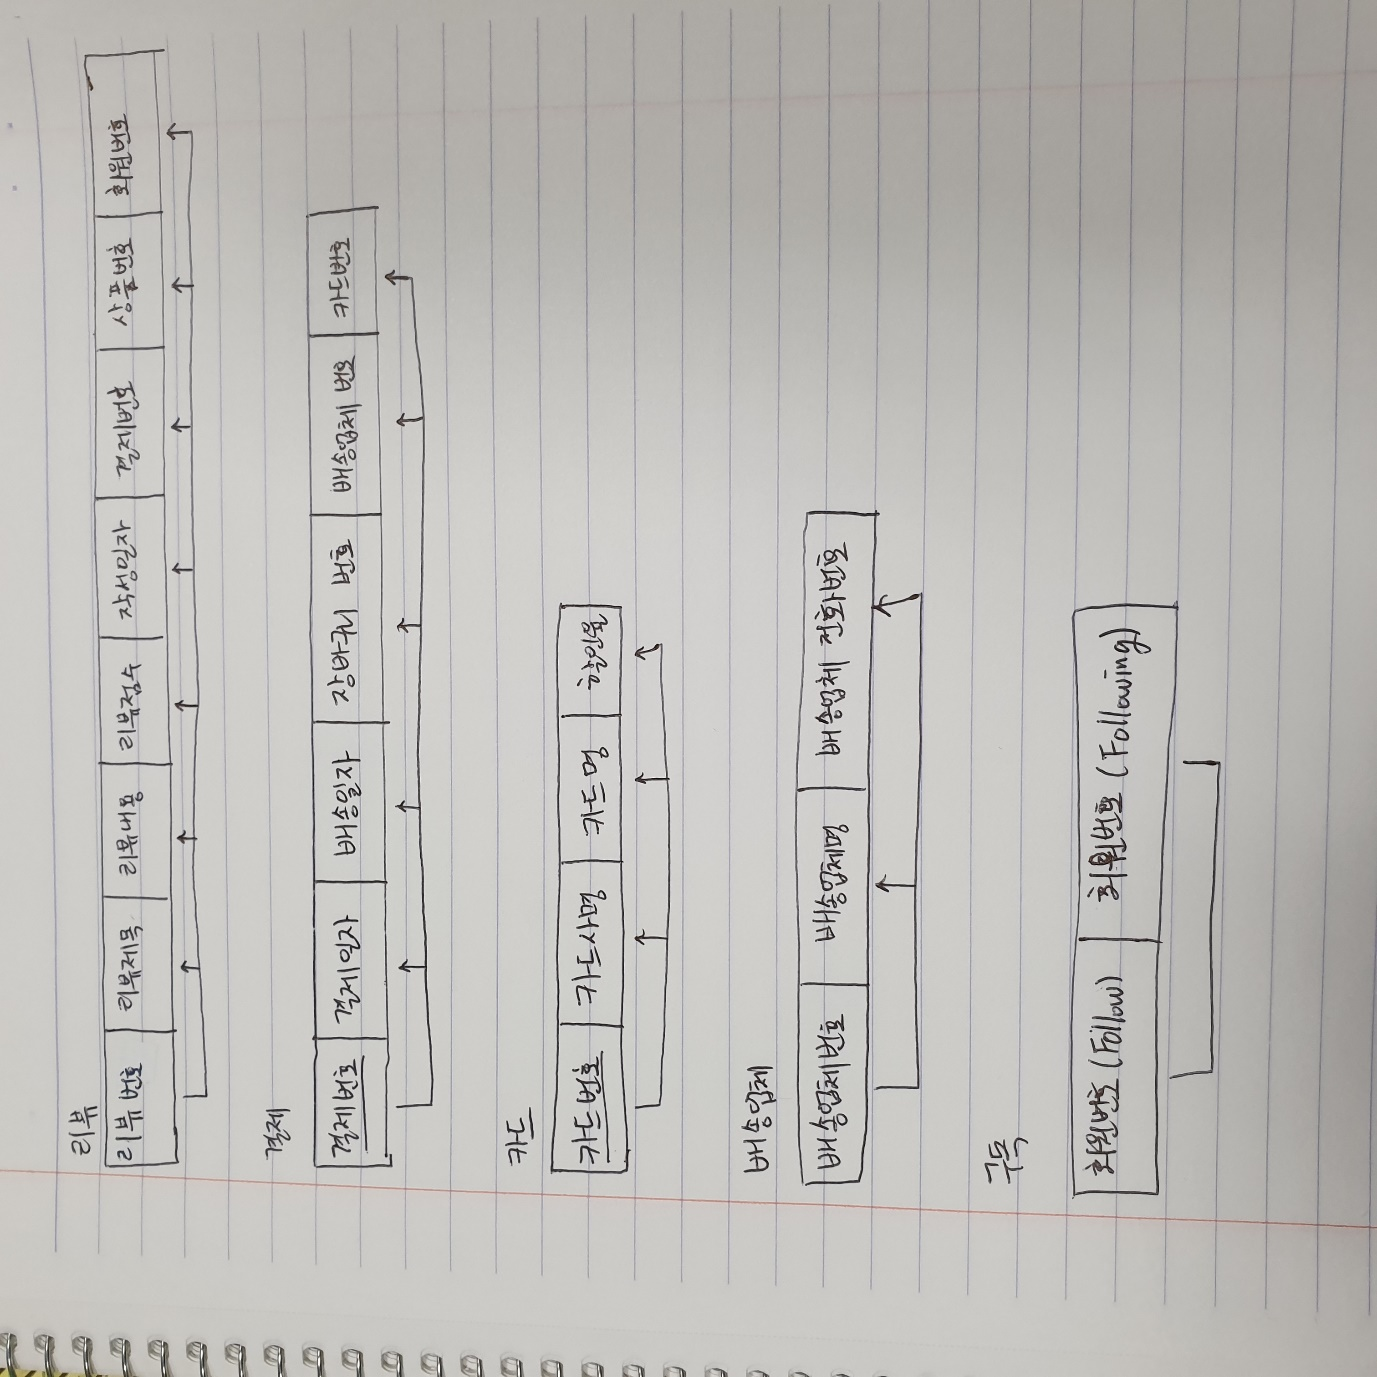 리뷰
리뷰 번호 리뷰제목 리뷰내용 리뷰점수 작성일자 결제번호 상품번호 회원번호
결제
결제번호 결제일자 배송일자 배송업체 번호 카드번호
카드
카드번호 카드사명 카드명
배송업체
배송업체번호 배송업체명 배송업체 전화번호
구독
회원번호 (Follow) 회원번호 (Following)